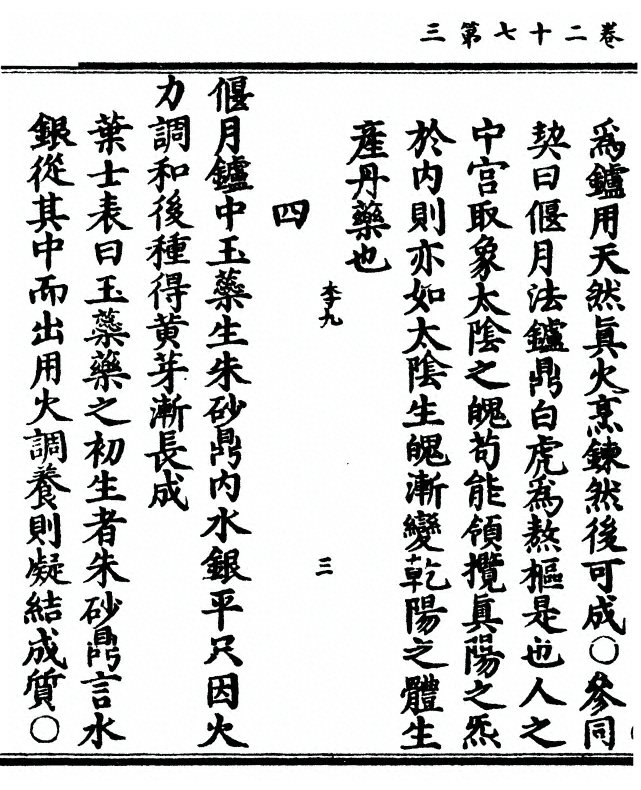 三第七十二卷
為鑪用天然眞火烹鍊然後可成○參同
契曰偃月法鑪鼎白虎為熬樞是也人之
中宮取象太陰之魄苟能領攬眞陽之炁
於内則亦如太陰生魄漸變乾陽之體生
產丹藥也
李九
三
四
偃月鑪中玉蘂生朱砂鼎内水銀平只因火
力調和後種得黃芽漸長成
葉士表曰玉蘂藥之初生者朱砂鼎言水
銀從其中而出用火調養則凝結成質○